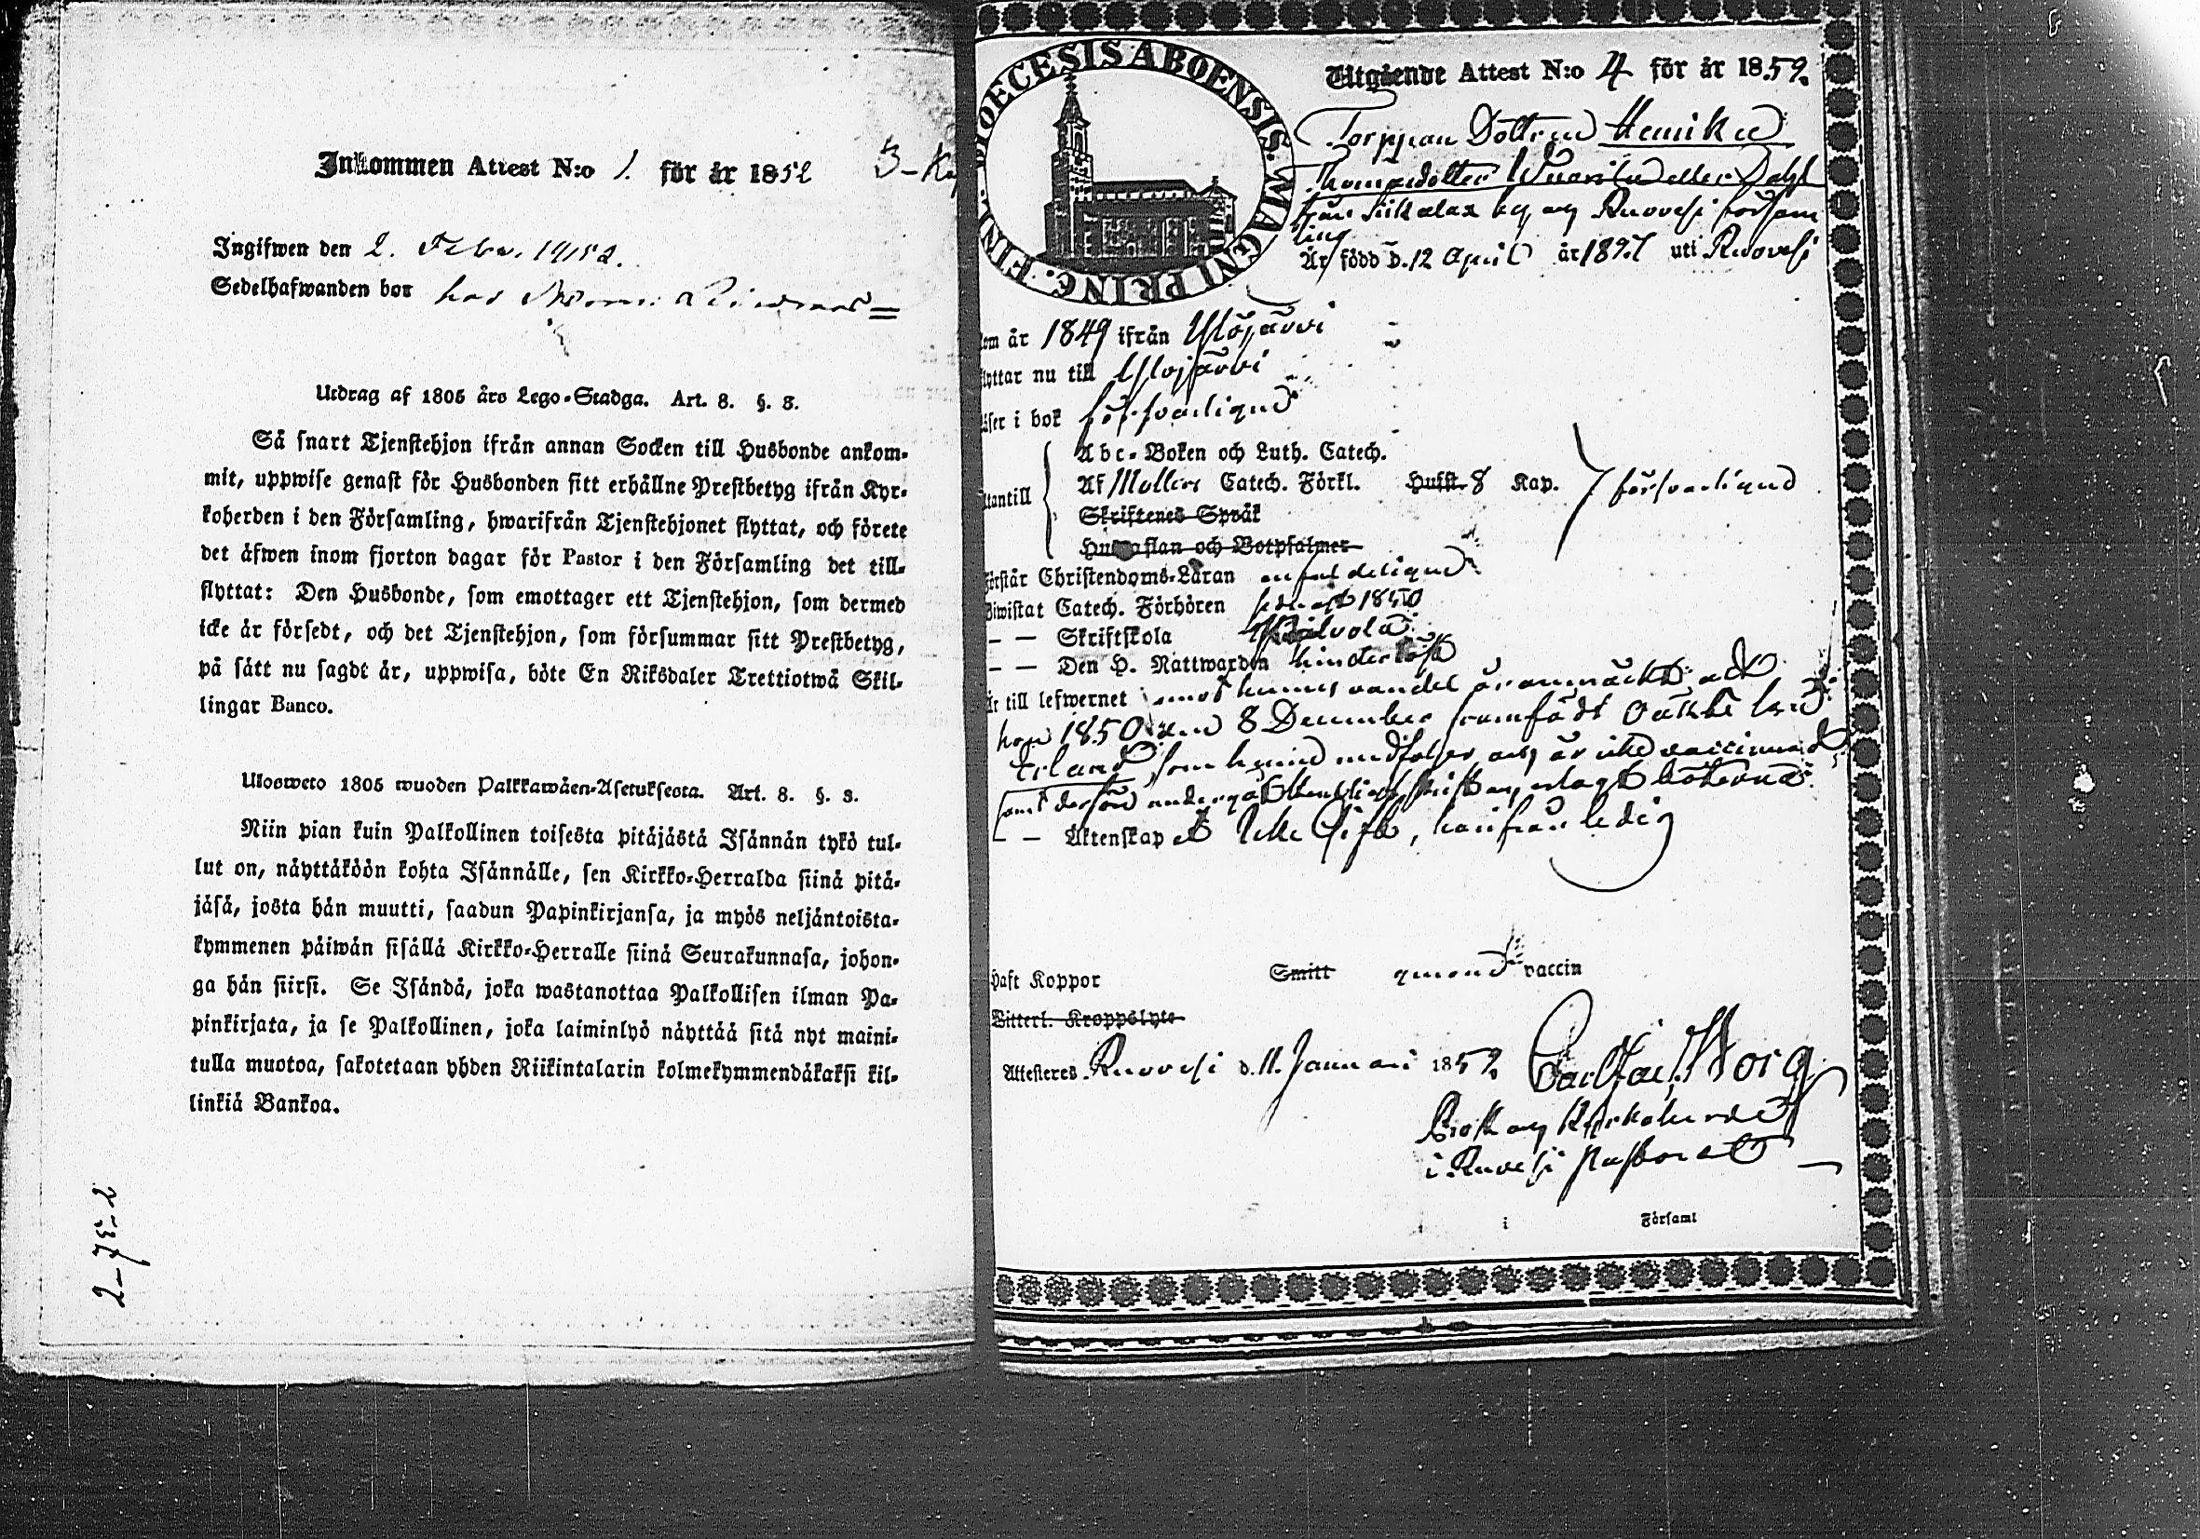 Inkommen Attest N:o 1. för år 1852
Ingifwen den 2. Febr. 1852.
Sedelhafwanden bor hos
Utdrag af 1805 års Lego-Stadga. Art. 8. §. 8.
Så snart Tjenstehjon ifrån annan Socken till Husbonde ankom-
mit, uppwise genast för Husbonden sitt erhållne Prestbetyg ifrån Kyr-
koherden i den Församling, hwarifrån Tjenstehjonet flyttat, och förete
det äfwen inom fjorton dagar för Pastor i den Församling det till-
flyttat: Den Husbonde, som emottager ett Tjenstehjon, som dermed
icke är försedt, och det Tjenstehjon, som försummar sitt Prestbetyg,
på sätt nu sagdt är, uppwisa, böte En Riksdaler Trettiotwå Skil-
lingar Banco.
Ulosweto 1805 wuoden Palkkawäen-Asetuksesta. Art. 8. §. 8.
Niin pian kuin Palkollinen toisesta pitäjästä Isännän tykö tul-
lut on, näyttäköön kohta Isännälle, sen Kirkko-Herralda siinä pitä-
jäsä, josta hän muutti, saadun Papinkirjansa, ja myös neljäntoista-
kymmenen päiwän sisällä Kirkko-Herralle siinä Seurakunnasa, johon-
ga hän siirsi. Se Isändä, joka wastanottaa Palkollisen ilman Pa-
pinkirjata, ja se Palkollinen, joka laiminlyö näyttää sitä nyt maini-
tulla muotoa, sakotetaan yhden Riikintalarin kolmekymmendäkaksi kil-
linkiä Bankoa.
DIOECESIS ABOENSIS. MAGNI PRINC. FINL.
Utgående Attest N:o 4 för år 1852.
Torppan Dottren Henrika
Thomasdotter eller Dahl
från by og Ruovesi församm
ling
Är född d. 12 April år 1827 uti Ruovesi
kom år 1849 ifrån Ylöjärvi
flyttar nu till Ylöjärvi
läser i bok försvarligen
Utantill
Abc-Boken och Luth. Catech.
Af Möllers Catech. Förkl. Hufst. 8 Kap. försvarligen
Skriftenes Språk
Hustaflan och Botpsalmer
Förstår Christendoms-Läran enfaldeligen
Biwistat Catech. Förhören sednast 1850
— — Skriftskola
— — Den H. Nattwarden hinderlöst
Är till lefwernet emot hennes vandel är anmärkt att
hon 1850 den 8 December framfödt oäkta
Erland, som henne medföljer och är icke vaccinerad
samt derföre undergått skrift och erlagt böterna.
— — Äktenskapet Icke Gift, härifrån ledig
Haft Koppor Smitt genom vaccin
Witterl. Kroppslyte
Attesteras. Ruovesi d. 11. Januari 1852. Carl Borg
Prost och Kyrkoherde
i Ruovesi Pastorat
i Församl
2-75-2